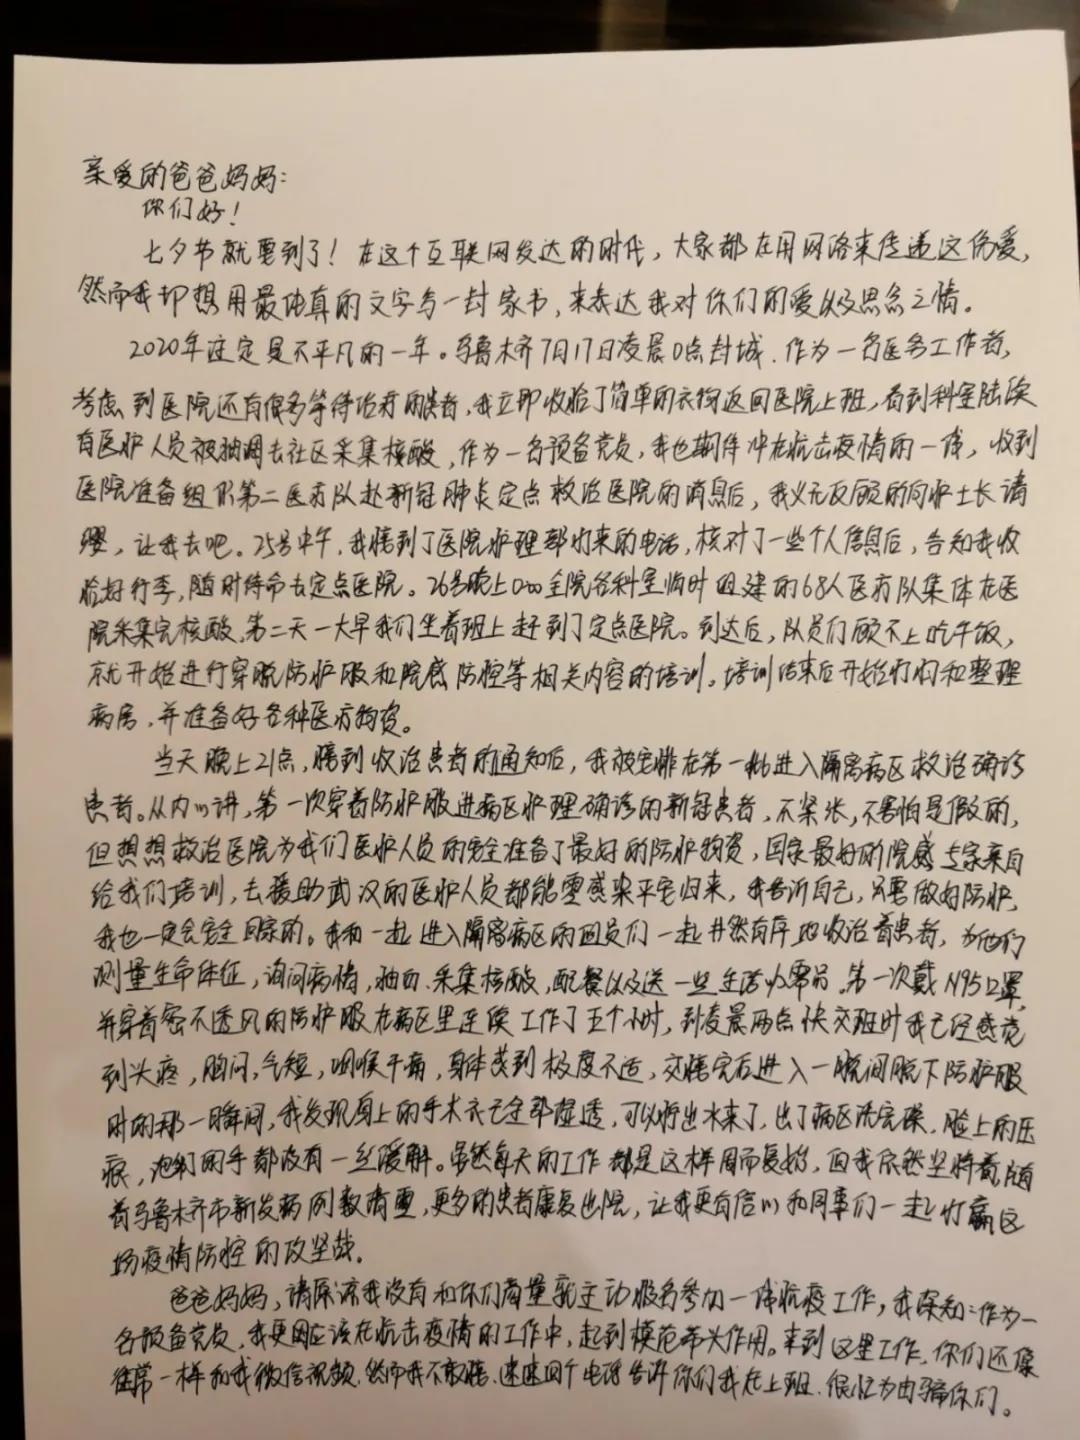 亲爱的爸爸妈妈：
你们好！
七夕节就要到了！在这个互联网发达的时代，大家都在用网络来传递这份爱，
然而我却想用最纯真的文字与一封家书，来表达我对你们的爱以及思念之情。
2020年注定是不平凡的一年。乌鲁木齐7月17日凌晨0点封城，作为一名医务工作者，
考虑到医院还有很多等待治疗的患者，我立即收拾了简单的衣物返回医院上班，看到科室陆续
有医护人员被抽调去社区采集核酸，作为一名预备党员，我也期待冲在抗击疫情的一线，收到
医院准备组织第二医疗队赴新冠肺炎定点救治医院的消息后，我义无反顾的向护士长请
缨，让我去吧。25号中午，我接到了医院护理部打来的电话，核对了一些个人信息后，告知我收
拾好行李，随时待命去定点医院。26号晚上全院各科室临时组建的68人医疗队集体在医
院采集完核酸，第二天一大早我们坐着班上赶到了定点医院。到达后，队员们顾不上吃午饭，
就开始进行穿脱防护服和院感防控等相关内容的培训。培训结束后开始打扫和整理
病房，并准备好各种医疗物资。
当天晚上21点，接到收治患者的通知后，我被安排在第一批进入隔离病区救治确诊
患者。从内心讲，第一次穿着防护服进病区护理确诊的新冠患者，不紧张，不害怕是假的，
但想想救治医院为我们医护人员的安全准备了最好的防护物资，国家最好的院感专家亲自
给我们培训，去援助武汉的医护人员都能零感染平安归来，我告诉自己，只要做好防护，
我也一定会安全回家的。我和一起进入隔离病区的队员们一起井然有序地收治着患者，为他们
测量生命体征，询问病情，抽血、采集核酸，配餐以及送一些生活必需品。第一次戴N95口罩，
并穿着密不透风的防护服在病区里连续工作了五个小时，到凌晨两点快交班时我已经感觉
到头疼，胸闷，气短，咽喉干痛，身体感到极度不适，交接完后进入一脱间脱下防护服
时的那一瞬间，我发现身上的手术衣已全部湿透，可以拧出水来了，出了病区洗完澡，脸上的压
痕，泡皱的手都没有一丝缓解。虽然每天的工作都是这样周而复始，但我依然坚持着，随
着乌鲁木齐市新发病例数清零，更多的患者康复出院，让我更有信心和同事们一起打赢这
场疫情防控的攻坚战。
爸爸妈妈，请原谅我没有和你们商量就主动报名参加一线抗疫工作，我深知：作为一
名预备党员，我更因应该在抗击疫情的工作中，起到模范带头作用。来到这里工作，你们还像
往常一样和我微信视频，然而我不敢接，速速回个电话告诉你们我在上班，很忙为由骗你们。